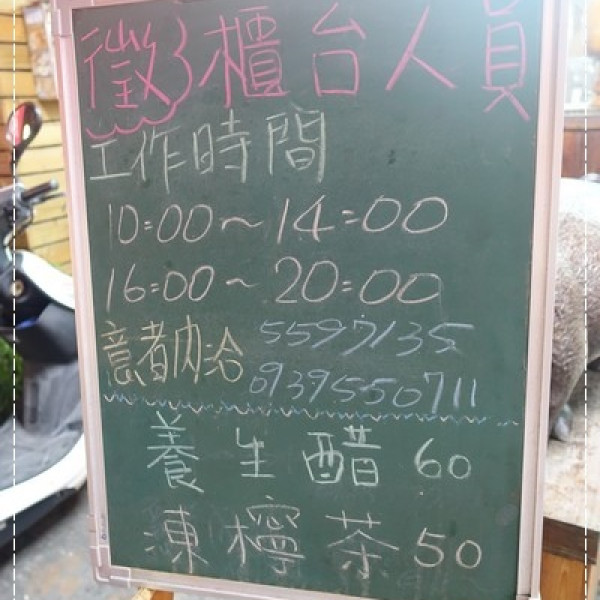 徵櫃台人員
工作時間
10:00～14:00
16:00～20:00
意者內洽 5597135
0939550711
養生醋 60
凍檸茶 50